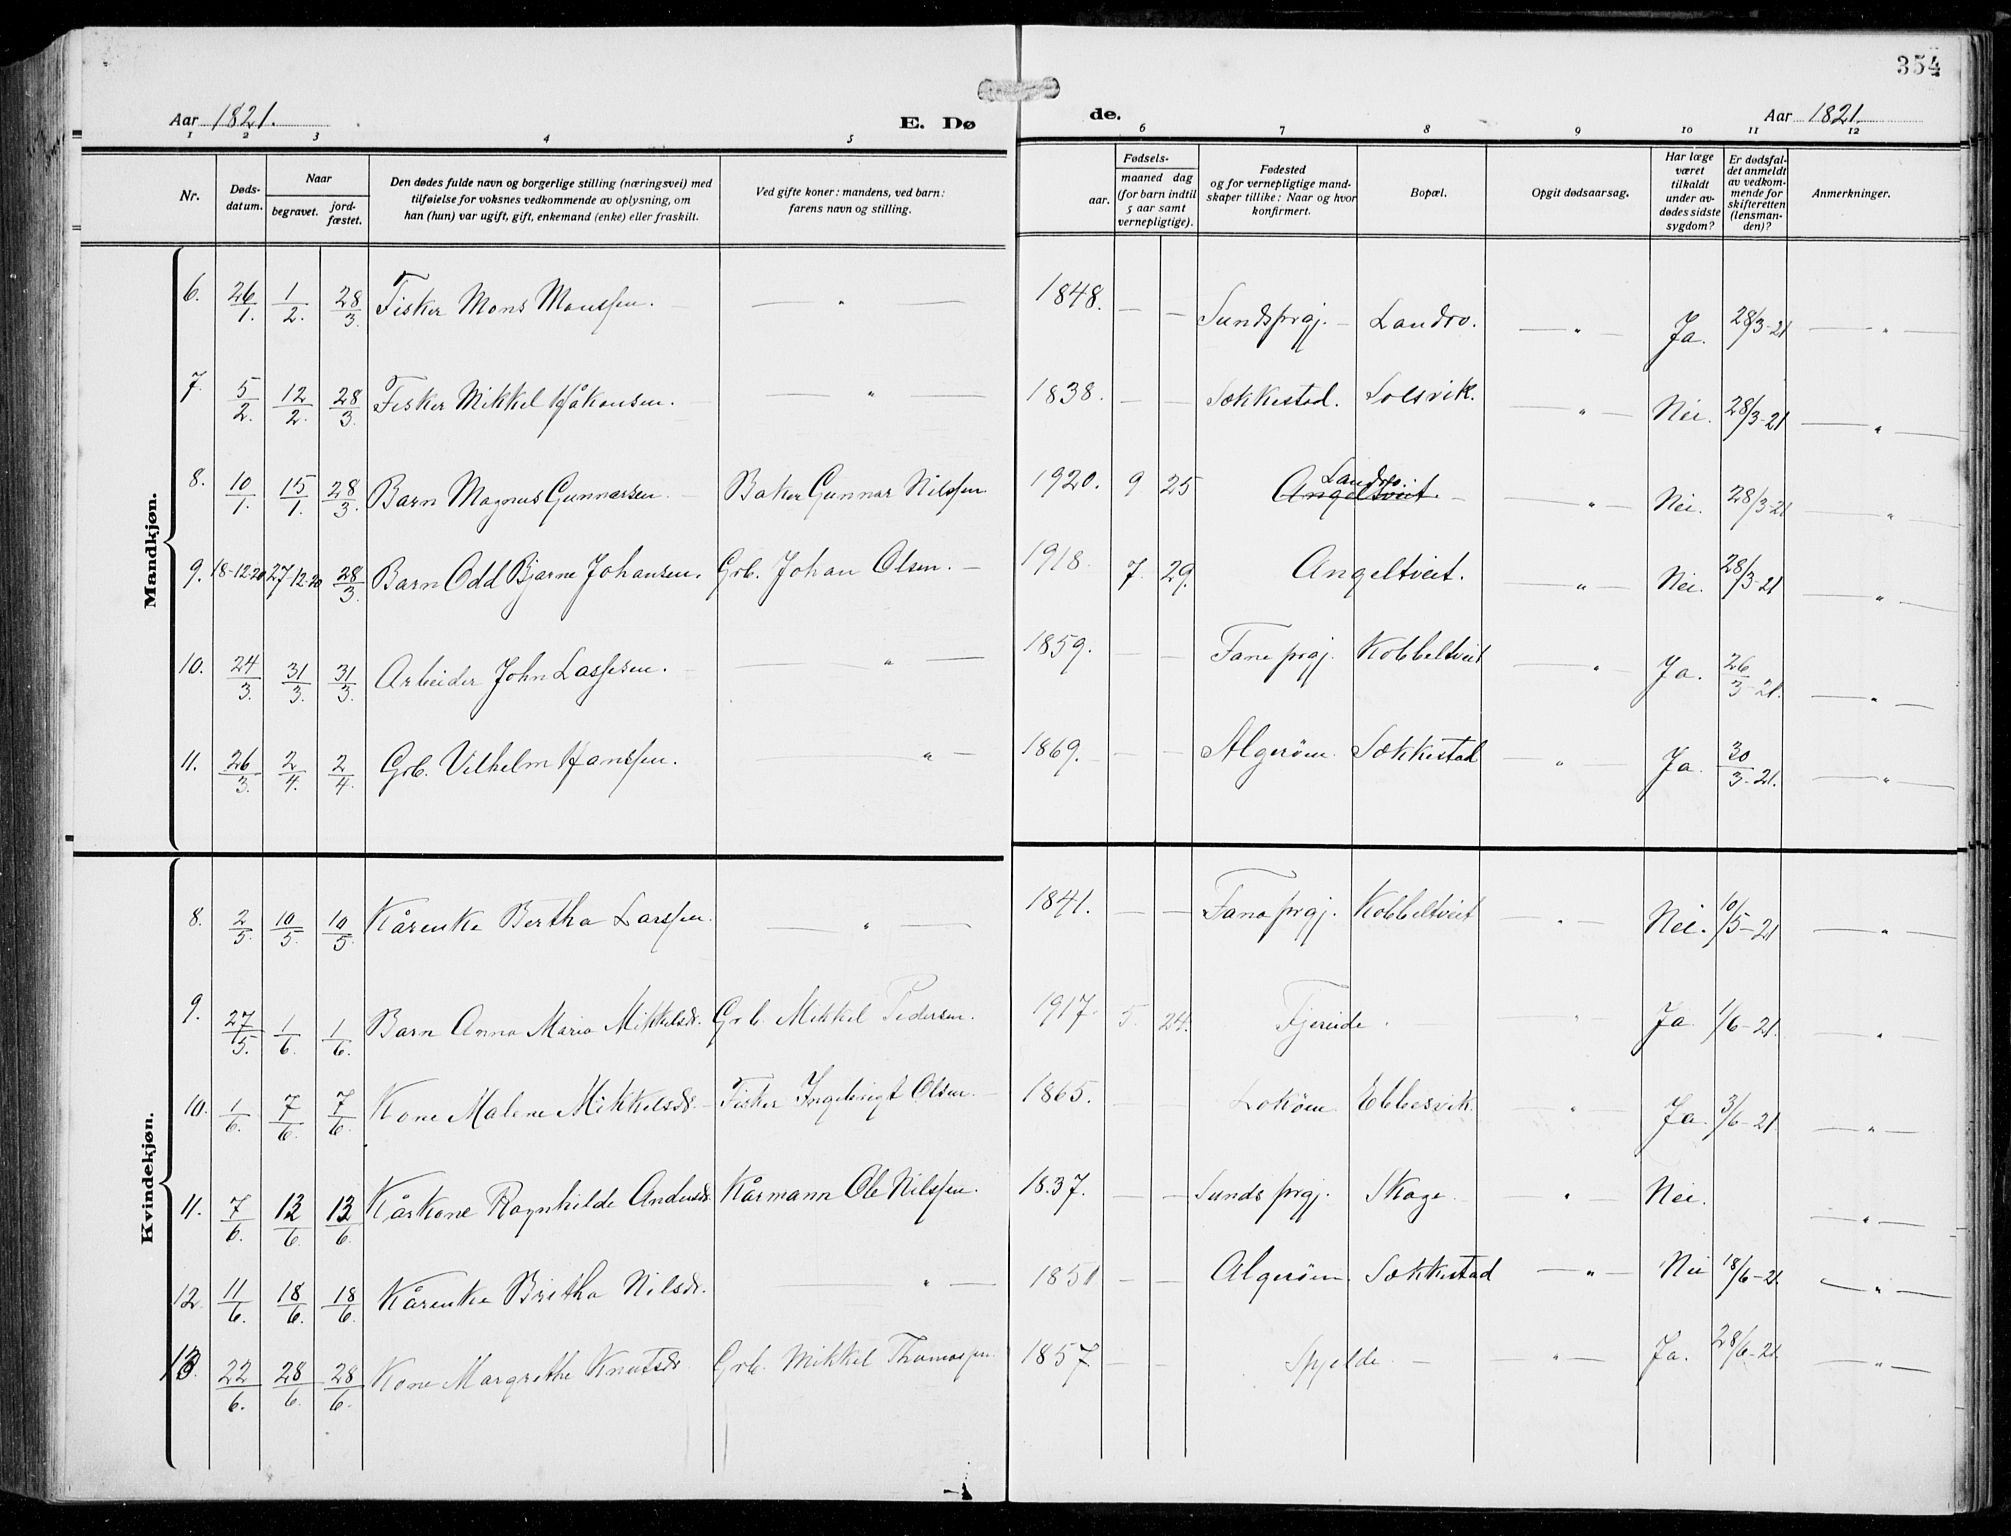 354
Aar 1821.
E. Døde.
Aar 1821.
1 2 3 4 5 6 7 8 9 10 11 12
Nr.
Døds-
datum.
Naar
begravet.
jord-
fæstet.
Den dødes fulde navn og borgerlige stilling (næringsvei) med
tilføielse for voksnes vedkommende av oplysning, om
han (hun) var ugift, gift, enkemand (enke) eller fraskilt.
Ved gifte koner: mandens, ved barn:
farens navn og stilling.
Fødsels-
aar.
maaned dag
(for barn indtil
5 aar samt
vernepligtige).
Fødested
og for vernepligtige mand-
skaper tillike: Naar og hvor
konfirmert.
Bopæl.
Opgit dødsaarsag.
Har læge
været
tilkaldt
under av-
dødes sidste
sygdom?
Er dødsfal-
det anmeldt
av vedkom-
mende for
skifteretten
(lensman-
den)?
Anmerkninger.
Mandkjøn.
6. 26/1. 1/2. 28/3 Fisker Mons Monssen. — " — 1848. — — Sundsprgj. — Landro. — " — Ja. 28/3-21 — " —
7. 5/2. 12/2. 28/3. Fisker Mikkel Håkonsen. — " — 1838. — — Sekkestad. Solsvik. — " — Nei. 28/3-21 — " —
8. 10/1. 15/1. 28/3. Barn Magnus Gunnarsen. Baker Gunnar Nilssen. 1920. 9 25 Landro. Angeltveit. — " — Nei. 28/3-21 — " —
9. 18-12-20 27-12-20 28/3 Barn Odd Bjarne Johansen. Grb. Johan Olsen. — 1918. 7. 29. Angeltveit. — " — Nei. 28/3-21 — " —
10. 24/3. 31/3. 31/3. Arbeider John Lassesen. — " — 1859. — — Fane prgj. Kobbeltveit — " — Ja. 26/3-21. — " —
11. 26/3. 2/4. 2/4 Grb. Vilhelm Hanssen. " — 1869. — — Algerøen. Sekkestad — " — Ja. 30/3-21. — " —
Kvindekjøn.
8. 2/5. 10/5. 10/5. Kårenke Bertha Larssen. — " — 1841. — — Fana prgj. Kobbeltveit — " — Nei. 10/5-21 — " —
9. 27/5. 1/6. 1/6. Barn Anna Maria Mikkelsdr. Grb. Mikkel Pedersen. 1917. 5. 24. Fjereide. " Ja. 1/6-21. — " —
10. 1/6. 7/6. 7/6. Kone Malene Mikkelsdr. — Fisker Ingebrigt Olsen. — 1865. — — Lokøen. Ebbesvik. — " — Ja. 3/6-21 — " —
11. 7/6. 13/6. 13/6. Kårkone Ragnhilde Andersdr. Kårmann Ole Nilssen. 1837. — Sunds prgj. Skoge. — " — Nei. — " —
12. 11/6. 18/6. 18/6. Kårenke Britha Nilsdr. " — 1851 — — Algerøen. Sekkestad — " — Nei 18/6-21. — " —
13. 22/6. 28/6. 28/6. Kone Margrethe Knutsdr. Grb. Mikkel Thomassen. 1857. — — Spjelde. — " — Ja. 28/6-21 — " —